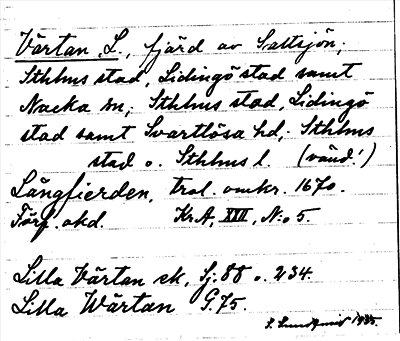 Värtan, L., fjärd av Saltsjön;
Sthlms stad, Lidingö stad samt
Nacka sn; Sthlms stad, Lidingö
stad samt Svartlösa hd; Sthlms
stad o. Sthlms l. (vänd!)
Långfierden, trol. omkr. 1670.
Förf. okd. KrA, XXII, No 5.
Lilla Värtan ek, Sj: 88 o. 234.
Lilla Wärtan G. 75.
1935.